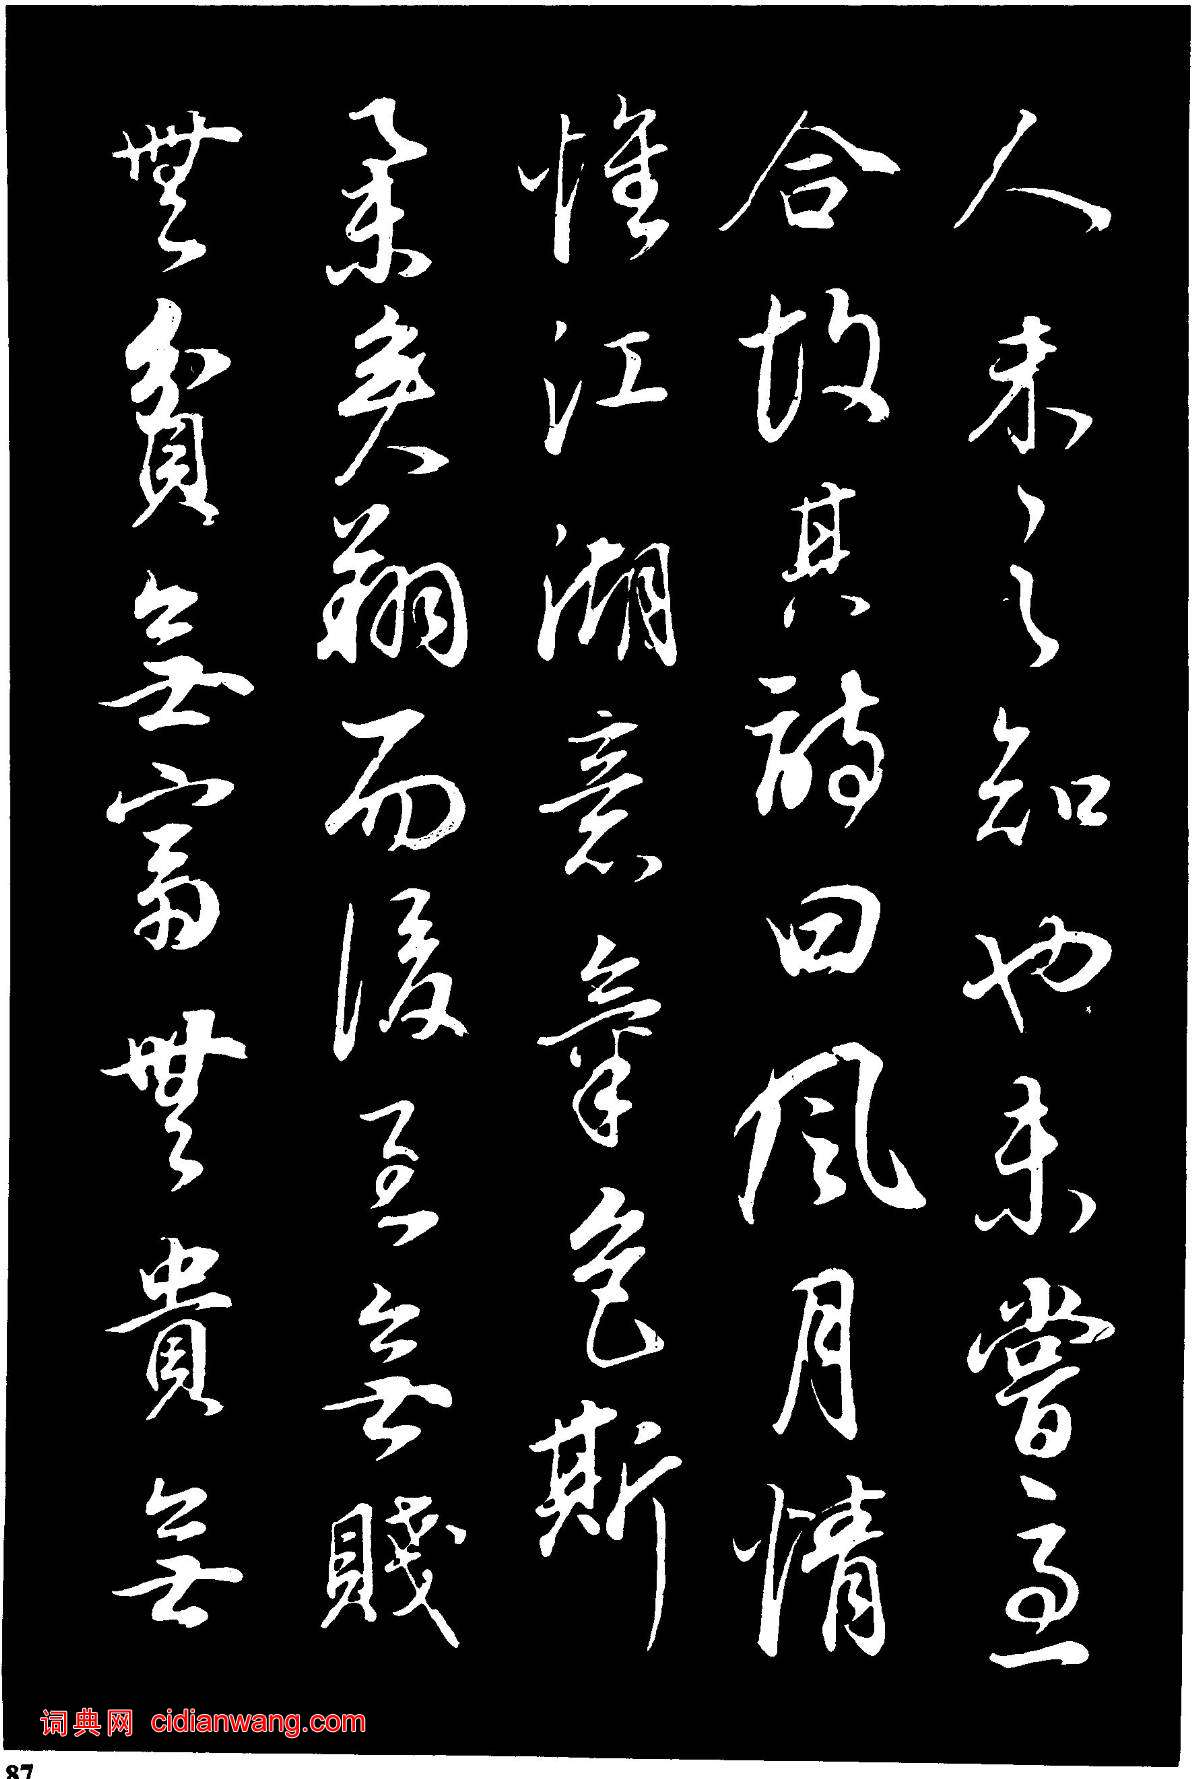 人未之知也未嘗
合故其詩曰風月情
惟江湖意氣色斯
柔矣翔而後至無賤
無貧無富無貴無
词典网 cidianwang.com
87